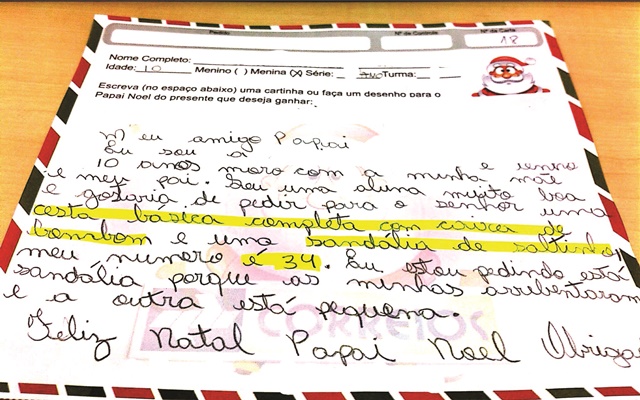 Pedido Nº de Controle Nº da Carta
18
Nome Completo:
Idade: 10 Menino ( ) Menina (X) Série: Turma:
Escreva (no espaço abaixo) uma cartinha ou faça um desenho para o
Papai Noel do presente que deseja ganhar:
Meu amigo Papai
Eu sou a e tenho
10 anos moro com a minha mãe
e meu pai. Sou uma aluna muito boa
e gostaria de pedir para o senhor uma
cesta básica completa com caixa de
bombom e uma sandália de saltinho,
meu numero e 34. Eu estou pedindo está
sandália porque as minhas arrebentaram
e a outra está pequena.
Feliz Natal Papai Noel
CORREIOS